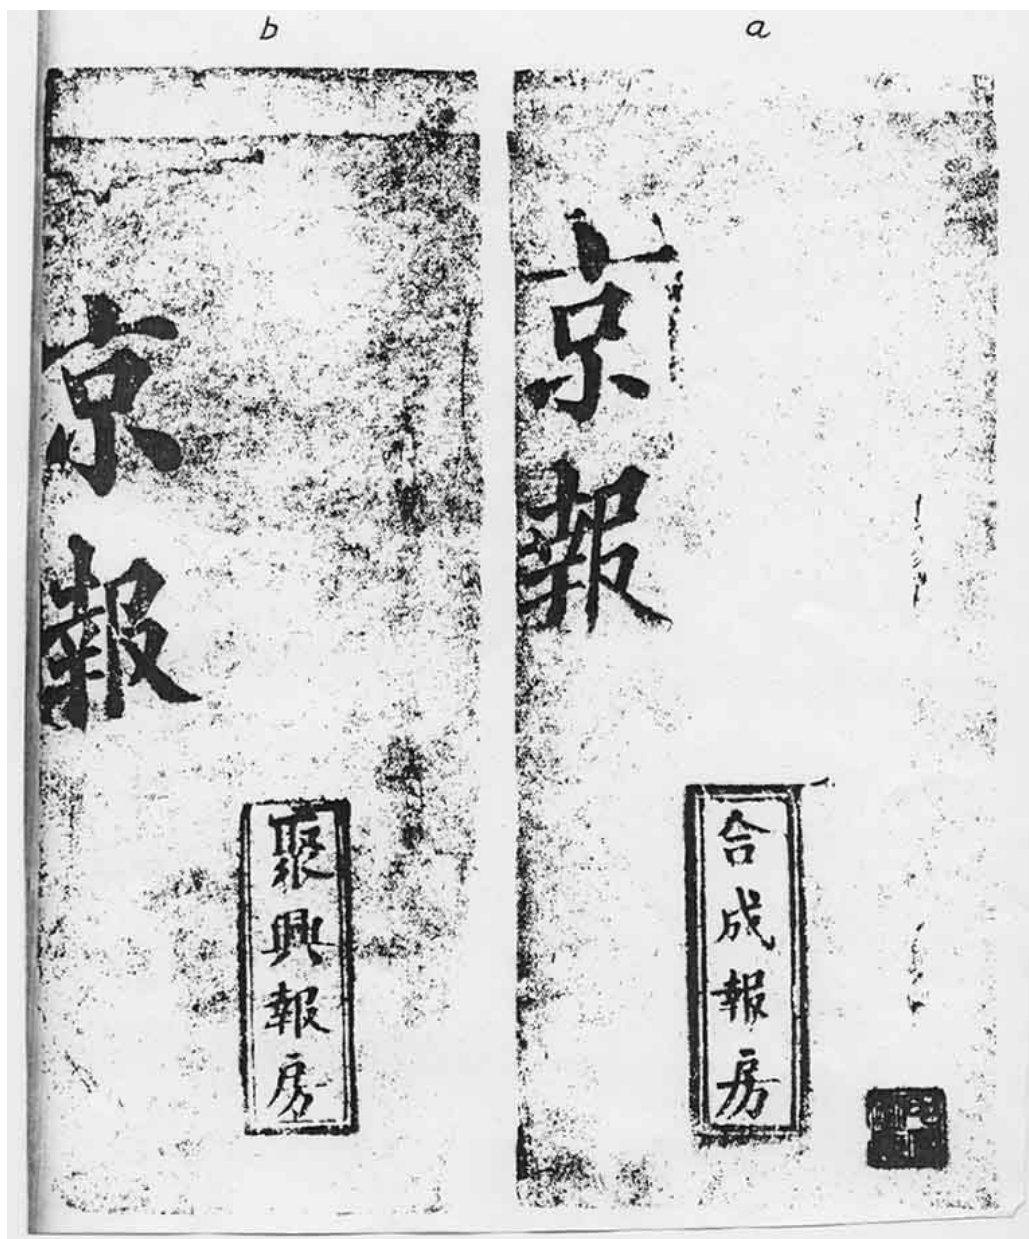 b
a
京報
合成報房
京報
聚興報房